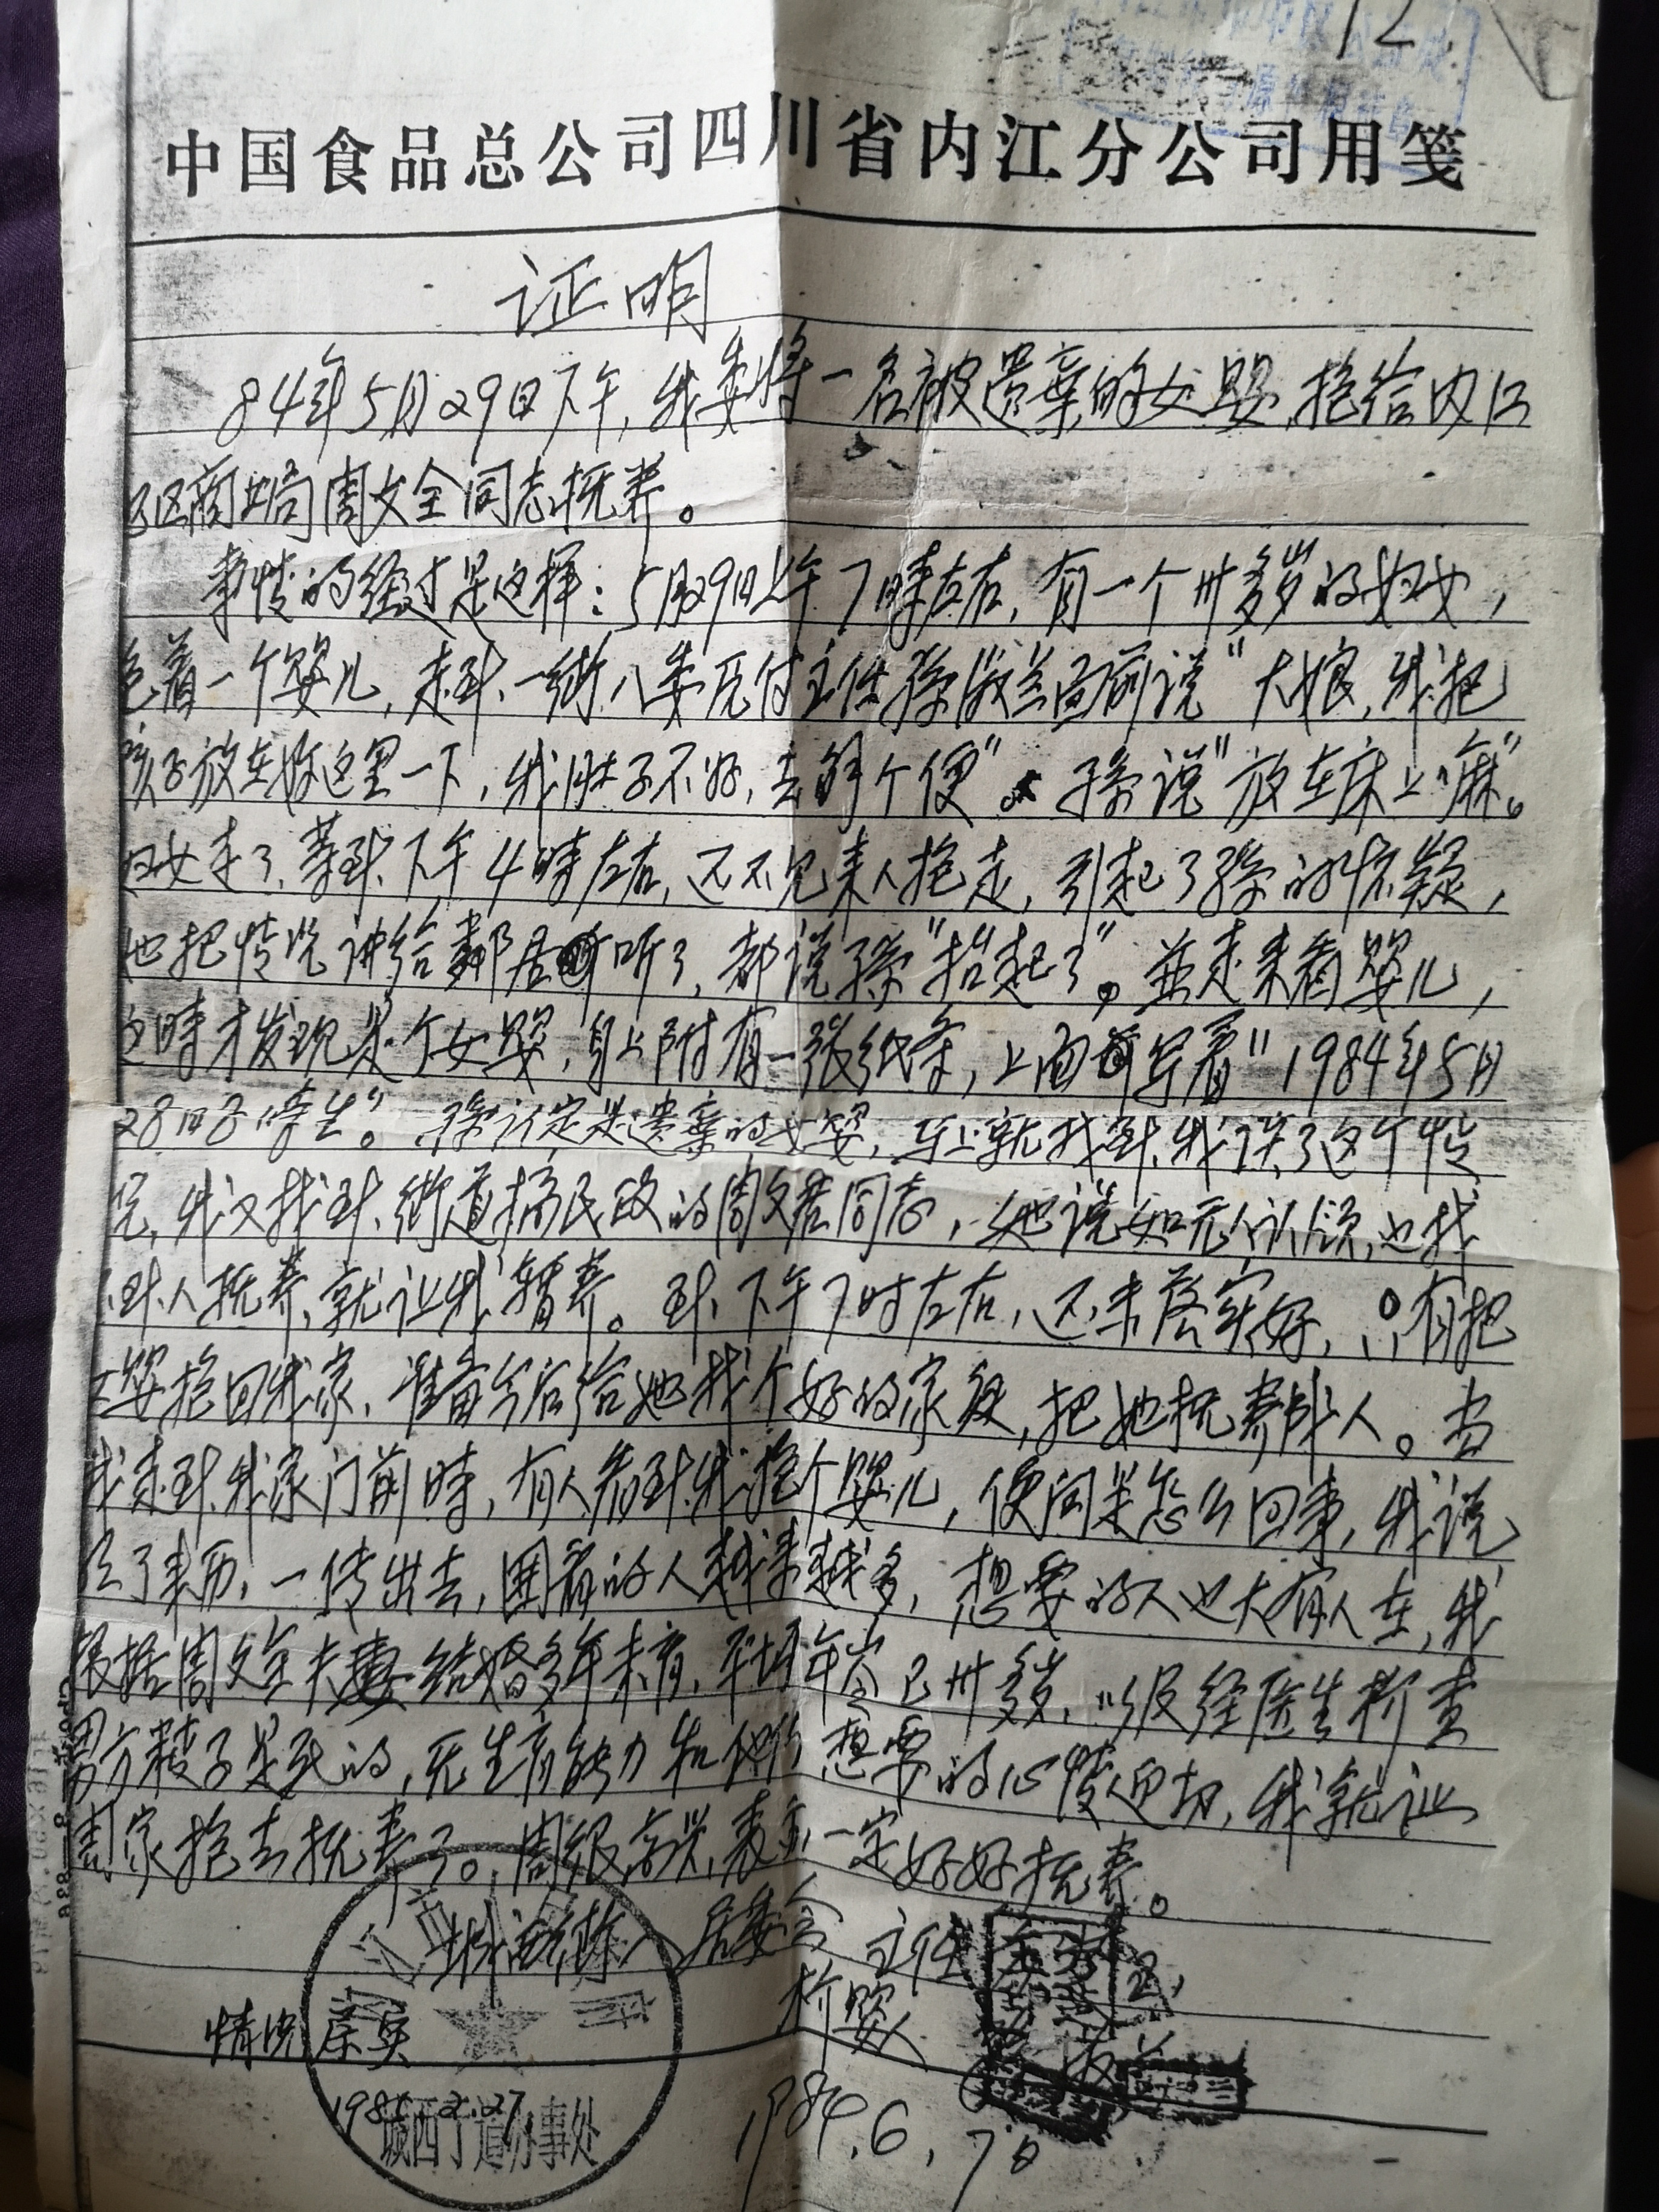 12
中国食品总公司四川省内江分公司用笺
证明
84年5月29日下午,我委将一名被遗弃的女婴,抱给内江
区商业局周文全同志抚养。
事情的经过是这样:5月29日上午7時左右,有一个卅多岁的妇女,
着一个婴儿,来到一街八委员付主任孫淑兰面前说"大娘,我把
孩子放在你这里一下,我肚子不好,去解个便"。孫说"放在床上嘛"。
妇女走了,等到下午4時左右,还不见来人抱走,引起了孫的怀疑,
他把情况讲给鄰居听了,都说孫"拈起了"。並走来看婴儿,
時才发现是个女婴,身上附有一張纸条,上面写着"1984年5月
28日子時生"。孫认定是遗棄的女婴,马上就找到我谈了这个情
况,我又找到街道搞民政的周文君同志,她说如无人认领,也找
到人抚养,就让我暂养。到下午7时左右,还未落实好,只有把
女婴抱回我家,准备今后给她找个好的家庭,把她抚养成人。当
我来到我家门前時,有人看到我抱个婴儿,便问是怎么回事,我说
了来历,一传出去,围着的人越来越多,想要的人也大有人在,我
根据周文全夫妻结婚多年未育,年龄已卅多岁,以及经医生断查
男方精子是死的,无生育能力和他们想要的心情迫切,我就让
周家抱去抚养了。周很高兴,表示一定好好抚养。
城西街八居委会 主任
拆婴人
情况属实
1984.6.7日
城西街道办事处